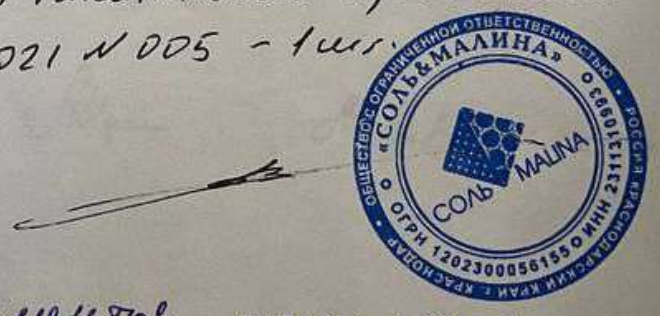 021 N 005 - 1 шт.
ОБЩЕСТВО С ОГРАНИЧЕННОЙ ОТВЕТСТВЕННОСТЬЮ • РОССИЯ КРАСНОДАРСКИЙ КРАЙ г. КРАСНОДАР •
«СОЛЬ&МАЛИНА»
ОГРН 1202300056155 ИНН 2311310993
СОЛЬ MALINA